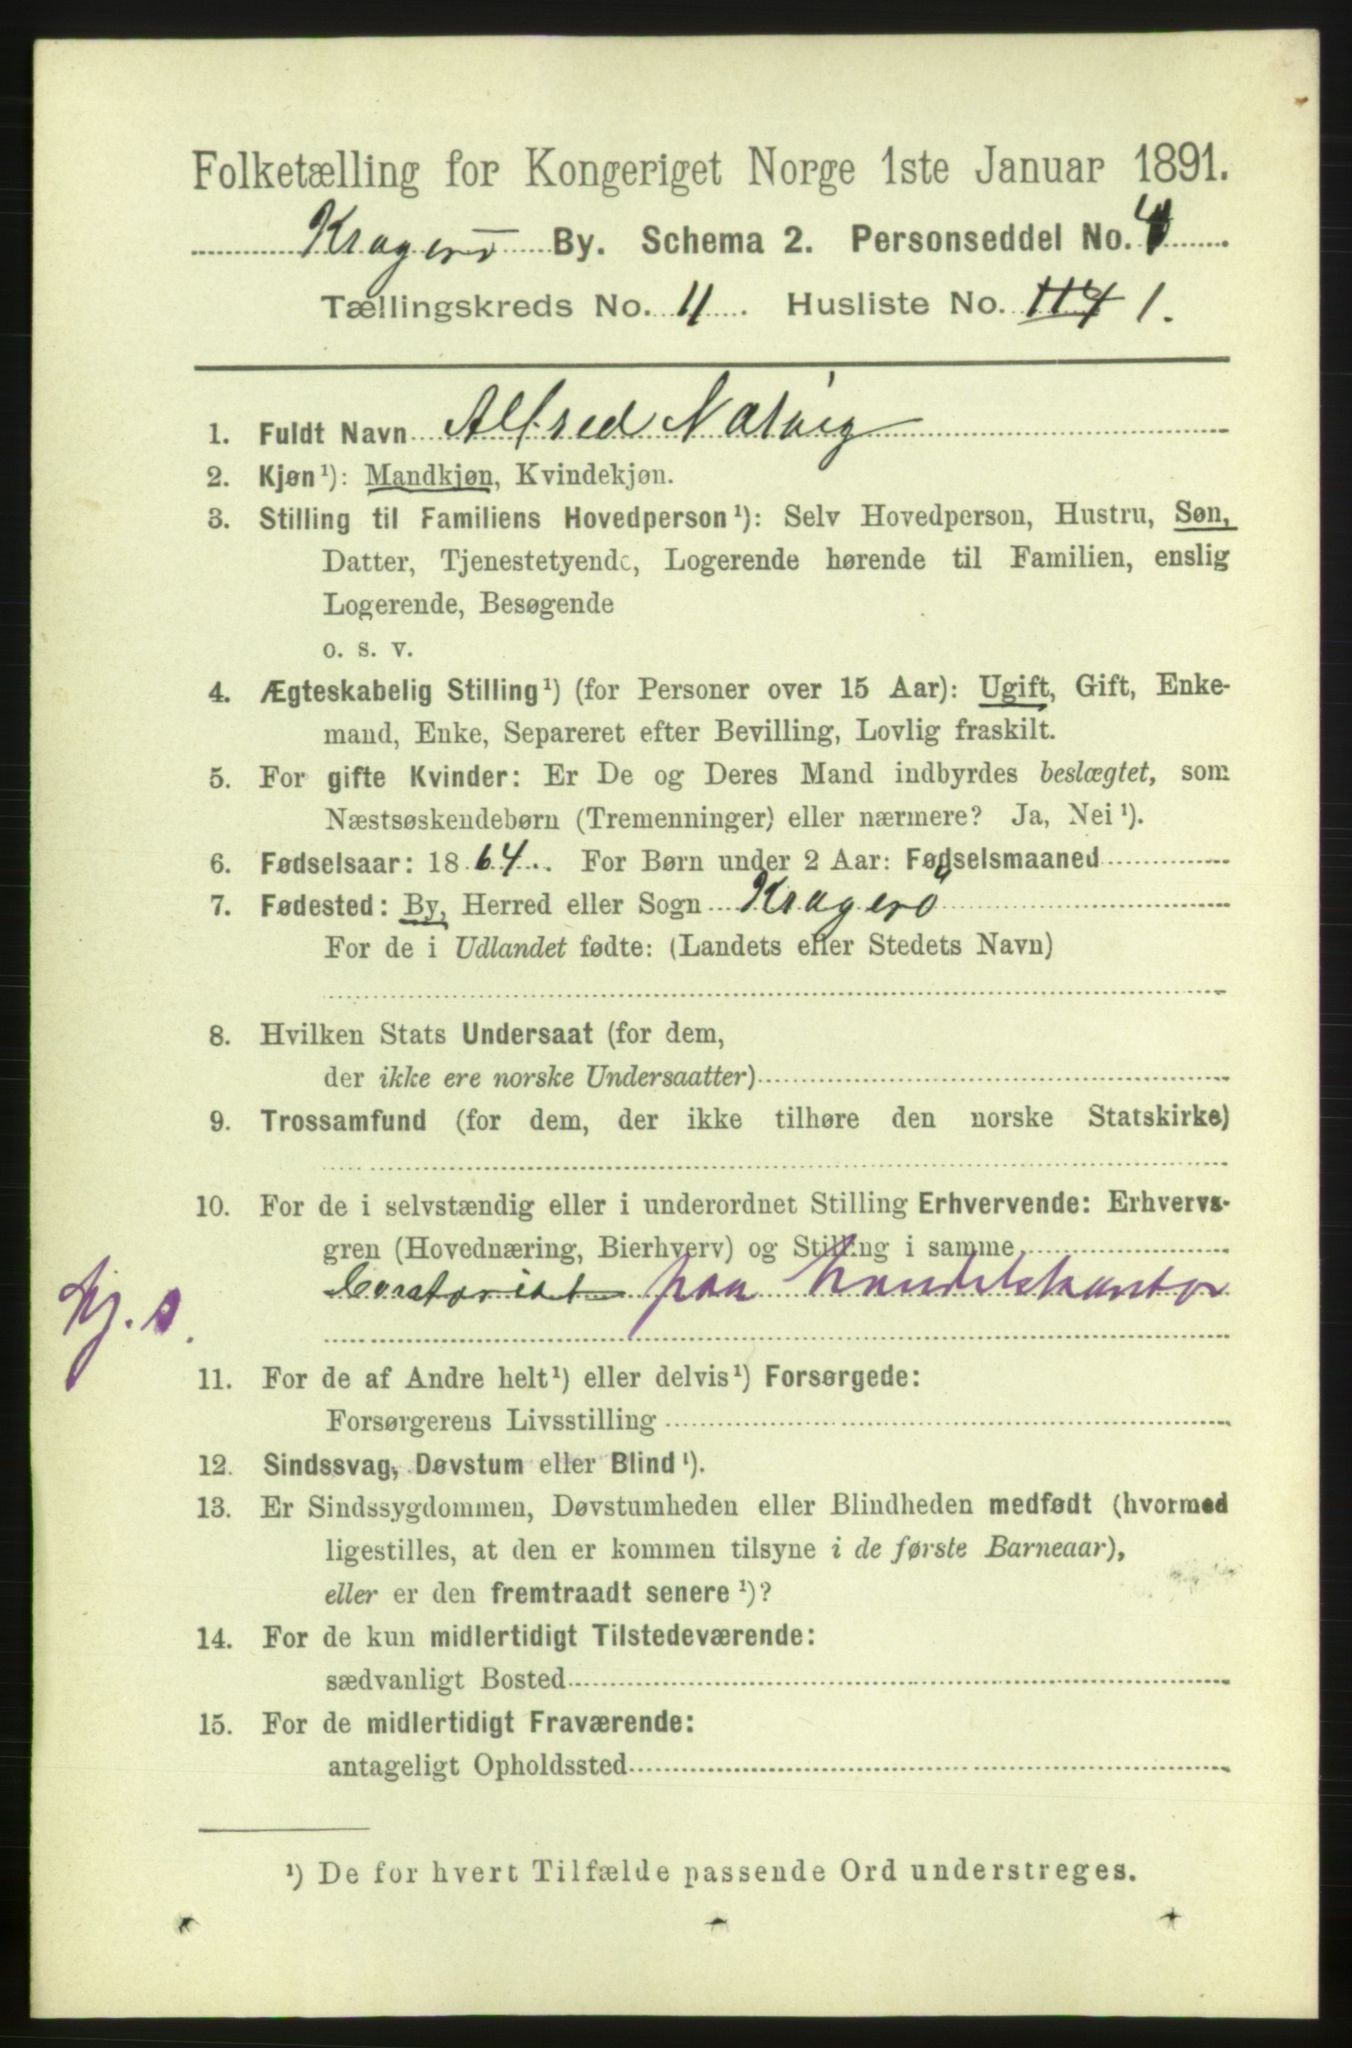 Folketælling for Kongeriget Norge 1ste Januar 1891.
Kragerø By. Schema 2. Personseddel No. 4
Tællingskreds No. 11. Husliste No. 114 1.
1. Fuldt Navn Alfred Narvig
2. Kjøn¹): Mandkjøn, Kvindekjøn.
3. Stilling til Familiens Hovedperson¹): Selv Hovedperson, Hustru, Søn,
Datter, Tjenestetyende, Logerende hørende til Familien, enslig
Logerende, Besøgende
o. s. v.
4. Ægteskabelig Stilling¹) (for Personer over 15 Aar): Ugift, Gift, Enke-
mand, Enke, Separeret efter Bevilling, Lovlig fraskilt.
5. For gifte Kvinder: Er De og Deres Mand indbyrdes beslægtet, som
Næstsøskendebørn (Tremenninger) eller nærmere? Ja, Nei¹).
6. Fødselsaar: 1864. For Børn under 2 Aar: Fødselsmaaned
7. Fødested: By, Herred eller Sogn Kragerø
For de i Udlandet fødte: (Landets eller Stedets Navn)
8. Hvilken Stats Undersaat (for dem,
der ikke ere norske Undersaatter)
9. Trossamfund (for dem, der ikke tilhøre den norske Statskirke)
10. For de i selvstændig eller i underordnet Stilling Erhvervende: Erhvervs-
gren (Hovednæring, Bierhverv) og Stilling i samme
Contorist paa Handelskontor
11. For de af Andre helt¹) eller delvis¹) Forsørgede:
Forsørgerens Livsstilling
12. Sindssvag, Døvstum eller Blind¹).
13. Er Sindssygdommen, Døvstumheden eller Blindheden medfødt (hvormed
ligestilles, at den er kommen tilsyne i de første Barneaar),
eller er den fremtraadt senere¹)?
14. For de kun midlertidigt Tilstedeværende:
sædvanligt Bosted
15. For de midlertidigt Fraværende:
antageligt Opholdssted
¹) De for hvert Tilfælde passende Ord understreges.